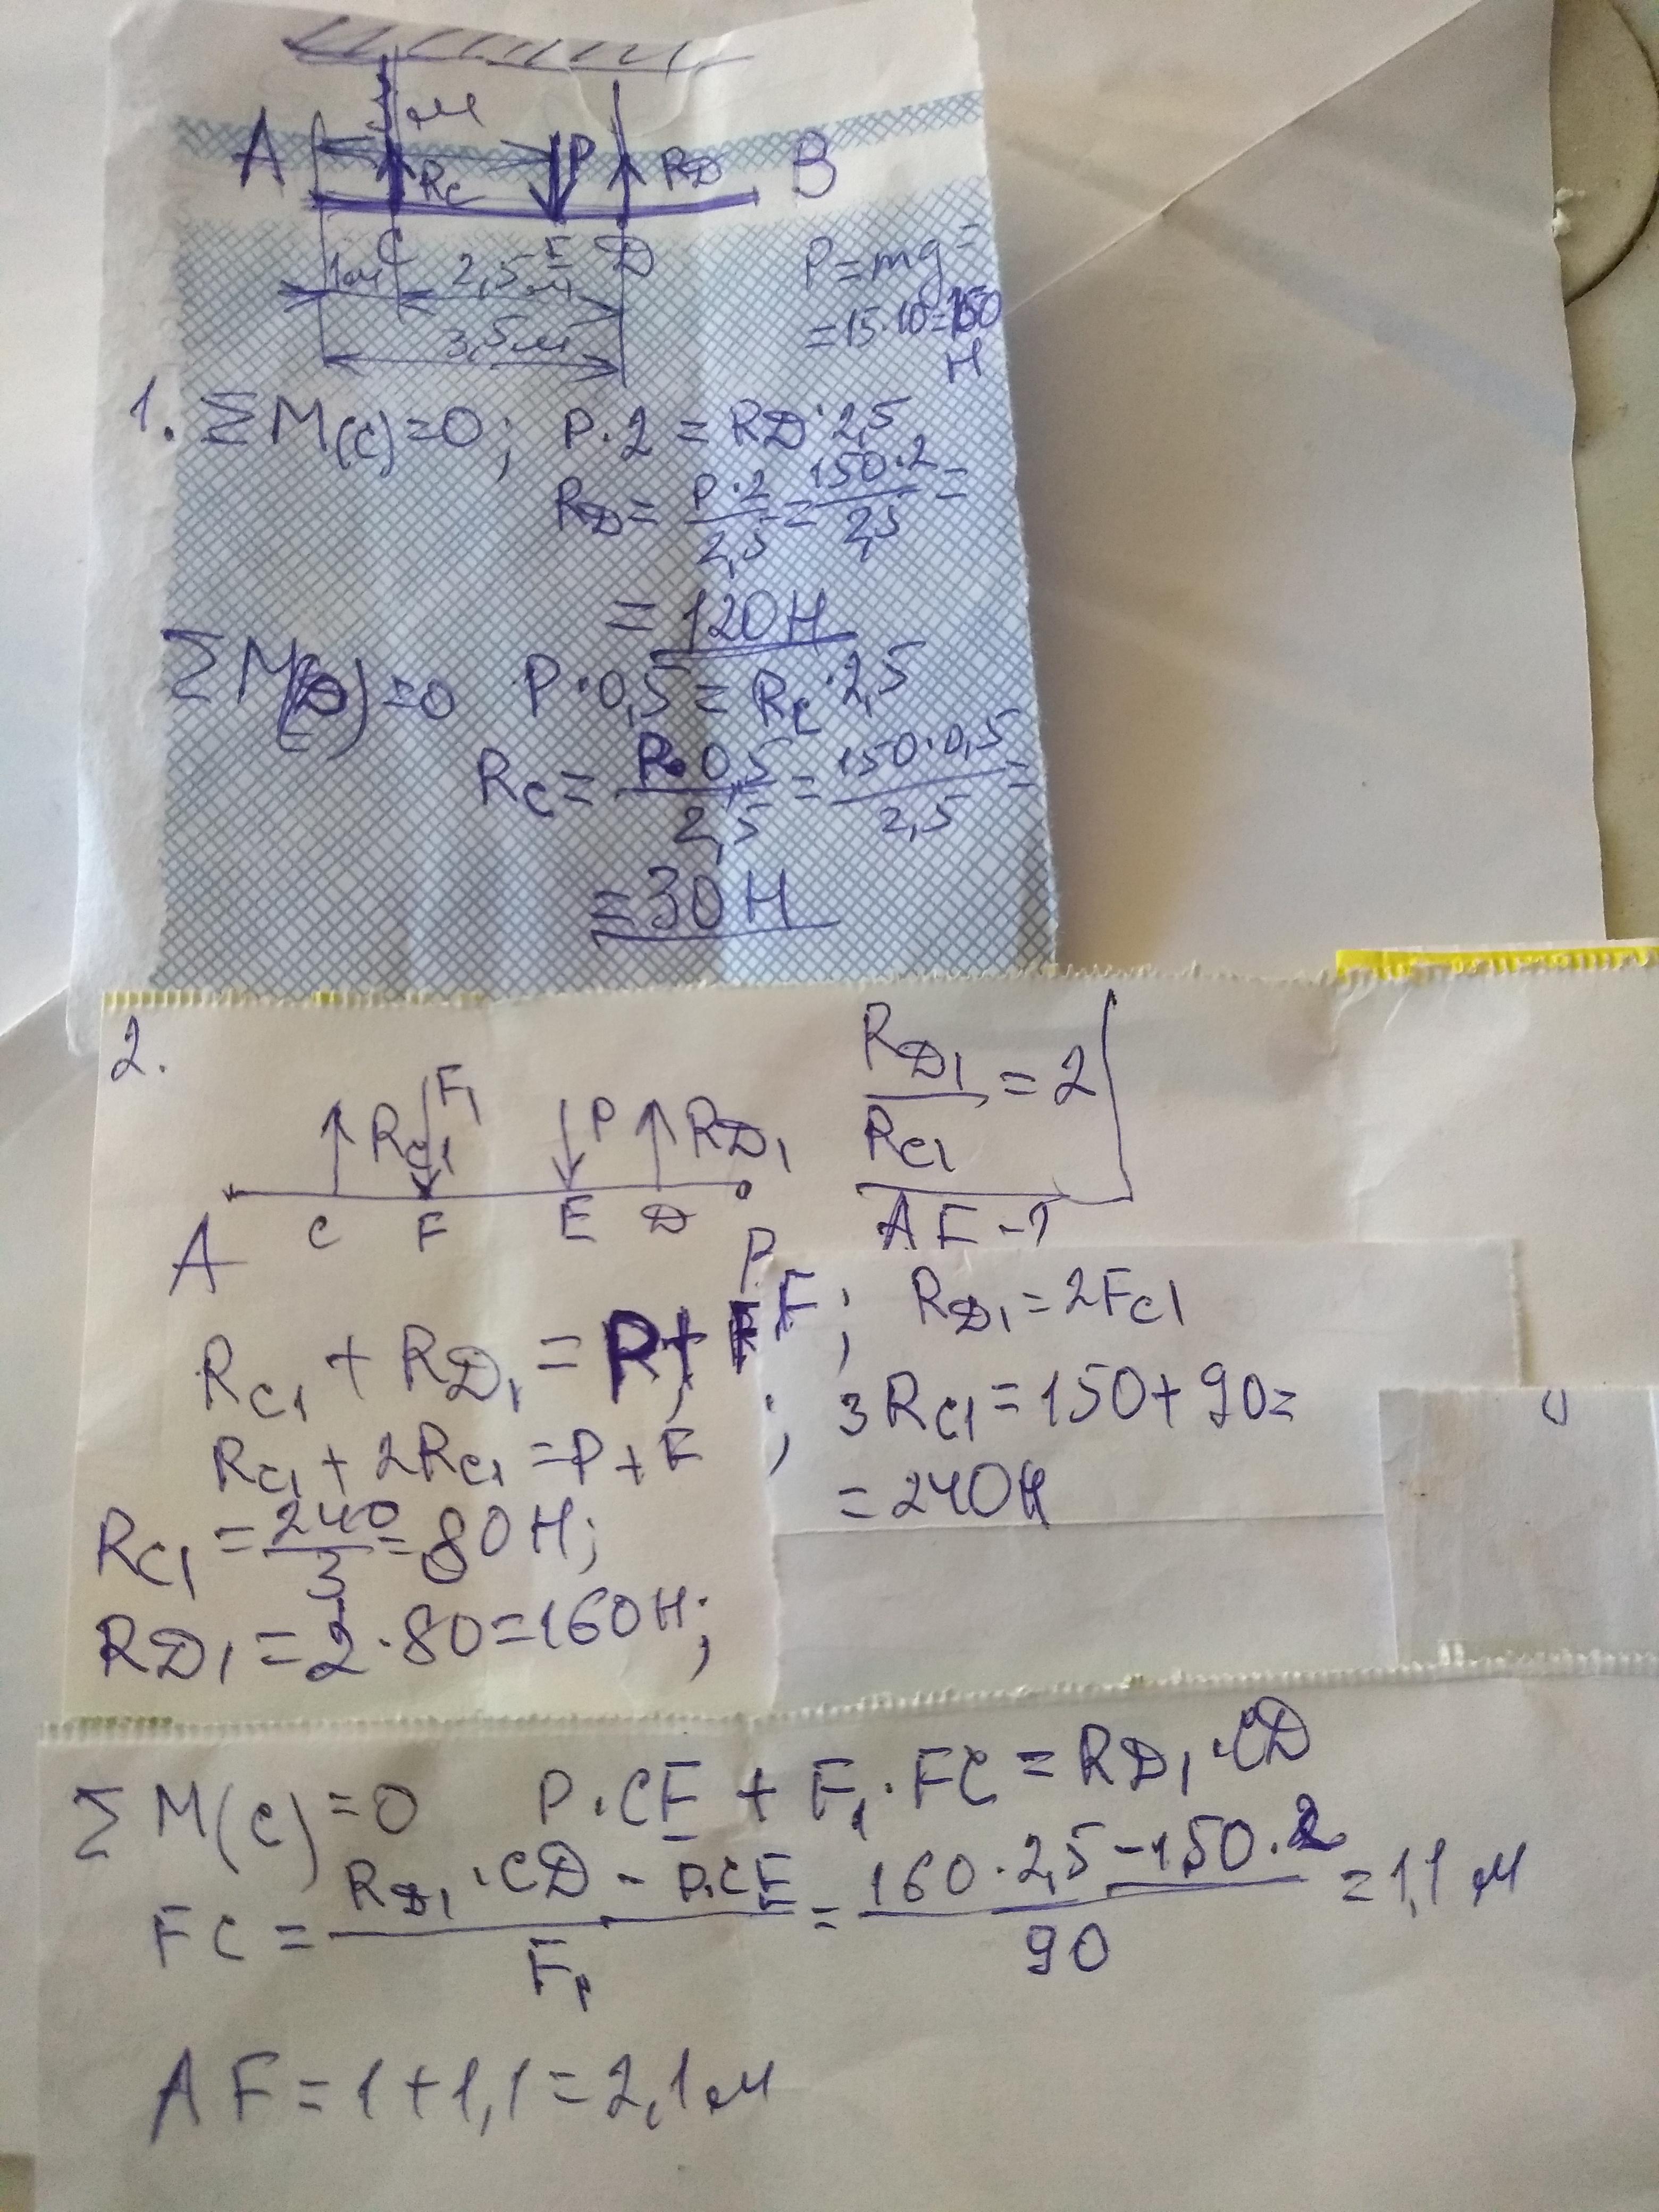 3м
A Rc P RD B
C E D
1м 2,5м
3,5м
P=mg=
=15·10=150
Н
1. ΣM(c)=0; P·2 = RD·2,5
RD = P·2/2,5 = 150·2/2,5 =
= 120Н
ΣM(D)=0 P·0,5 = Rc·2,5
Rc = P·0,5/2,5 = 150·0,5/2,5 =
= 30Н
2.
Rc1 F1 P RD1
A C F E D
RD1/Rc1 = 2
AF - ?
Rc1 + RD1 = P + F; RD1 = 2Fc1
Rc1 + 2Rc1 = P + F; 3Rc1 = 150 + 90 =
= 240Н
Rc1 = 240/3 = 80Н;
RD1 = 2·80 = 160Н;
ΣM(c)=0 P·CE + F1·FC = RD1·CD
FC = RD1·CD - P·CE/F1 = 160·2,5 - 150·2/90 = 1,1м
AF = 1 + 1,1 = 2,1м